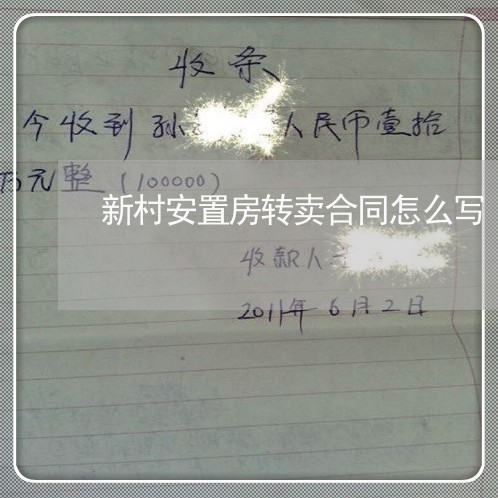 收条
今收到孙 人民币壹拾
万元整（100000）
新村安置房转卖合同怎么写
收款人
2011年6月2日